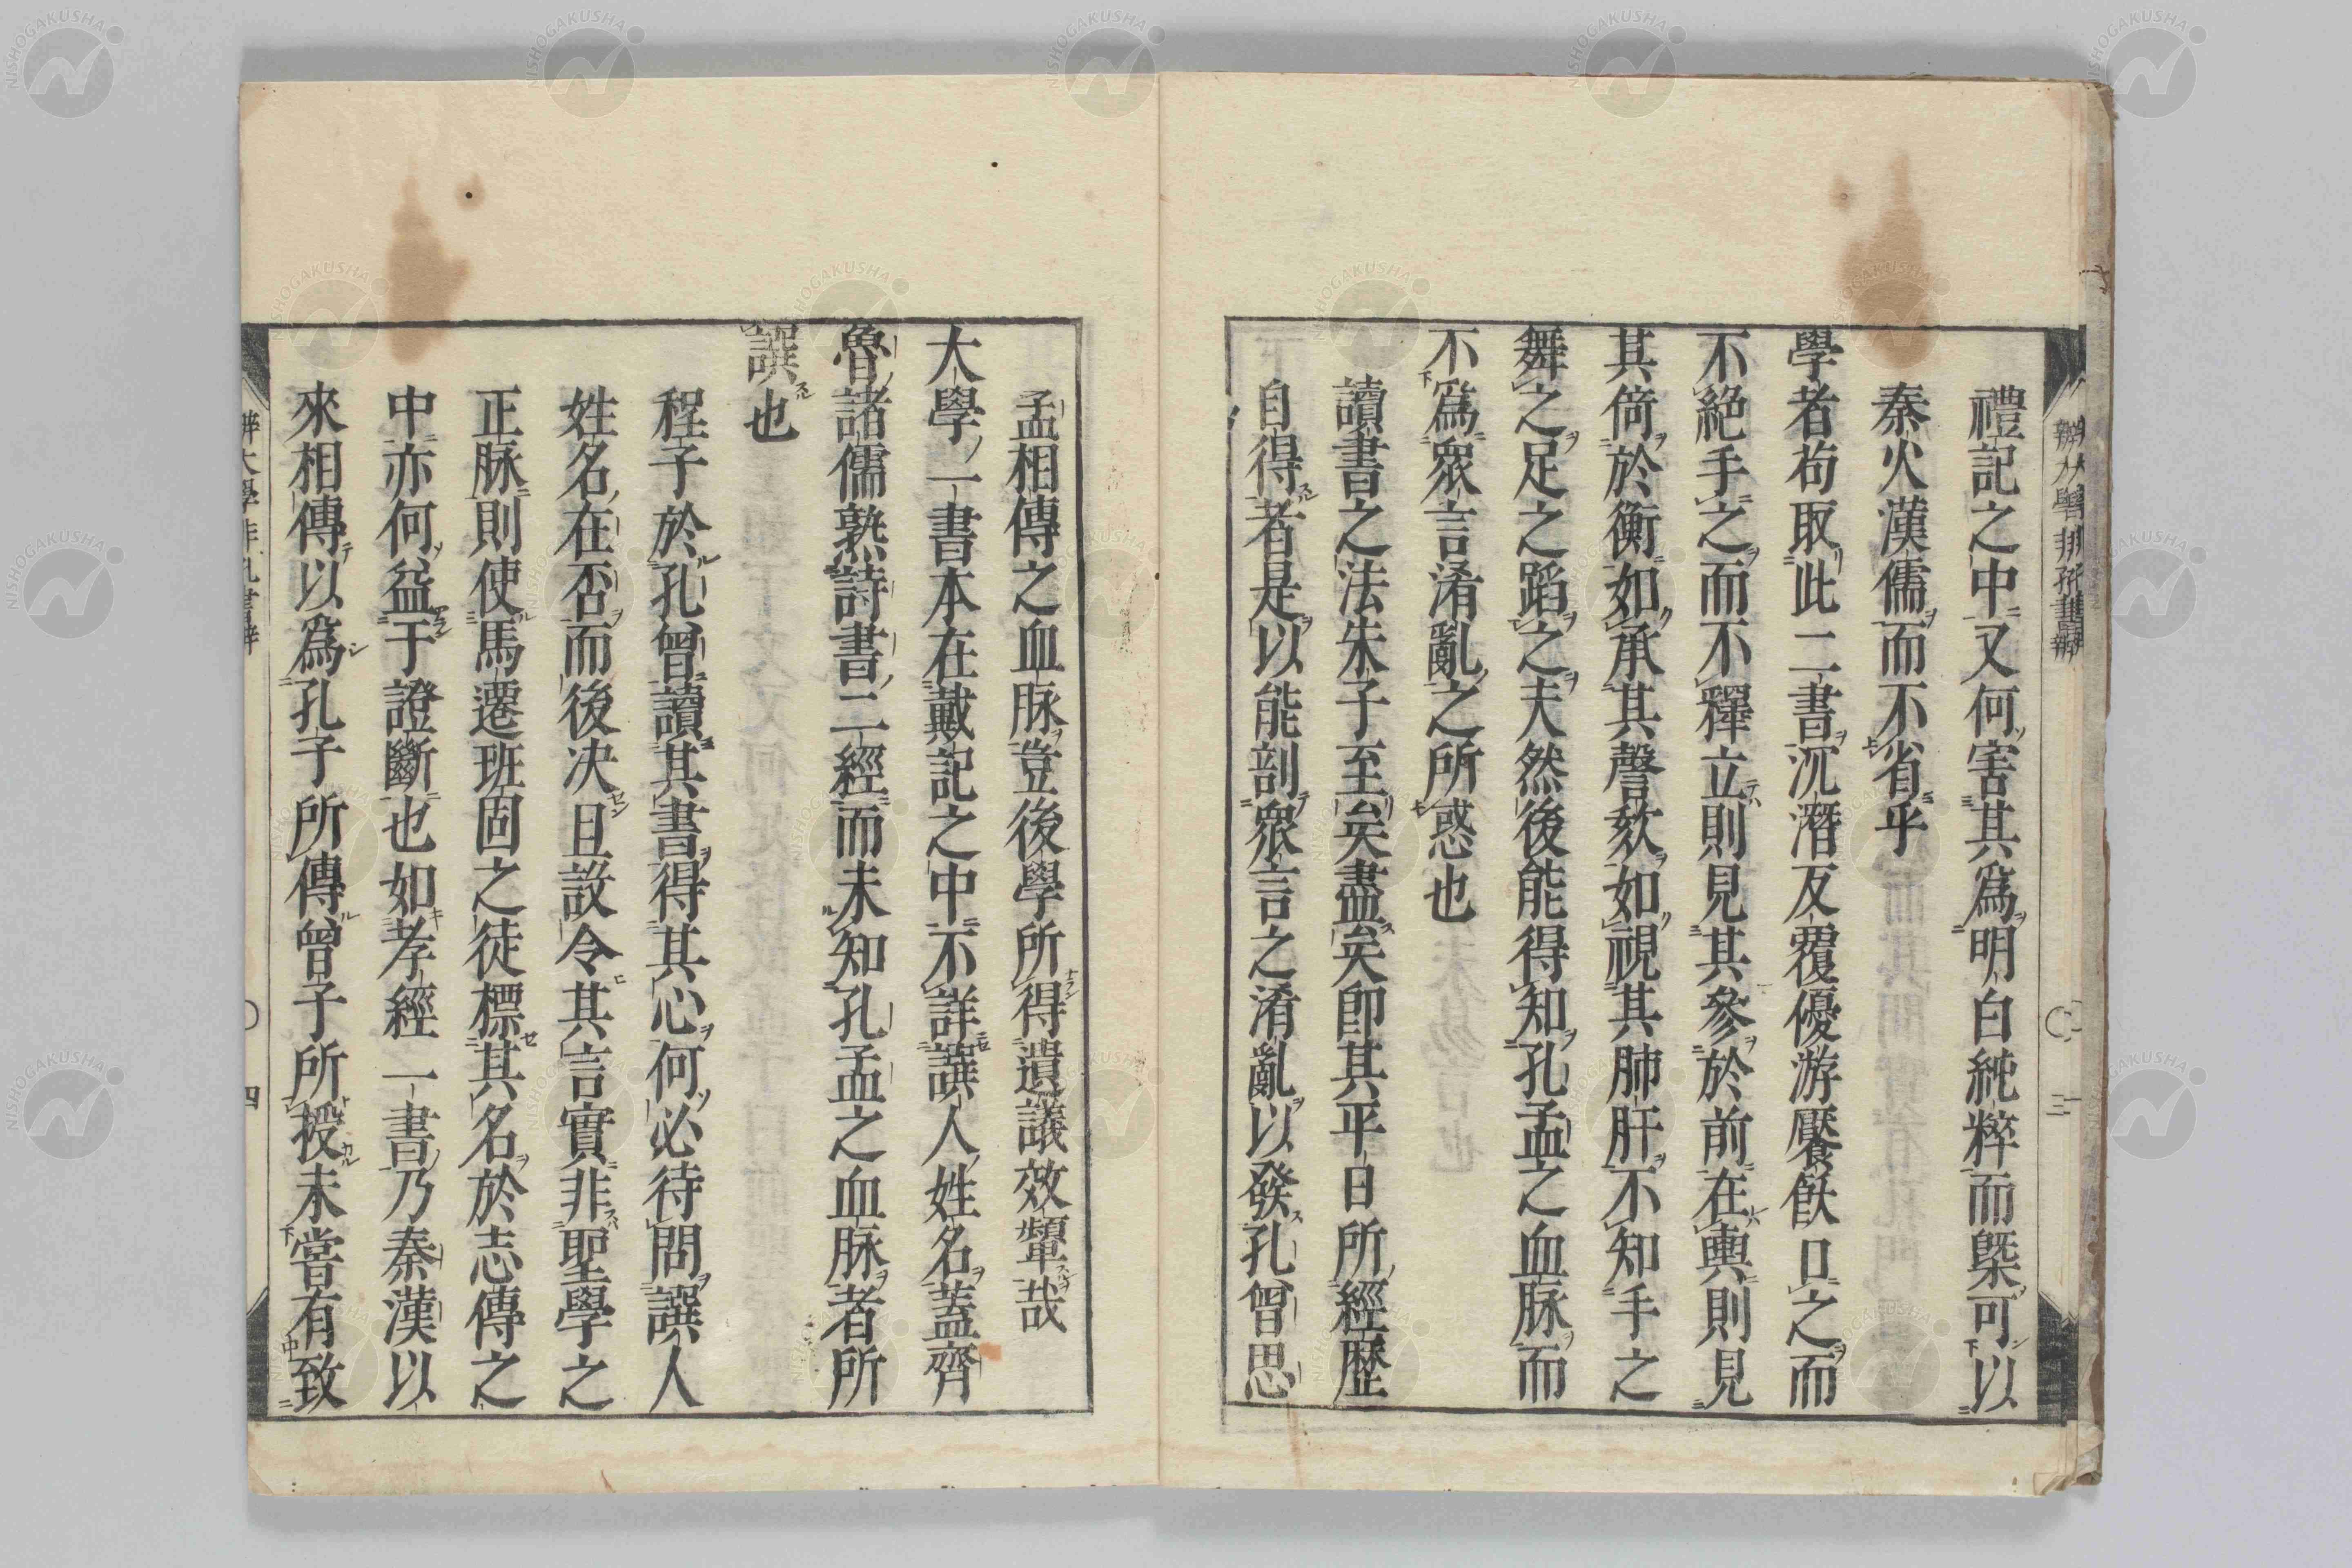 禮記之中又何害其爲明白純粹而槩可以
秦火漢儒而不省乎
學者苟取此二書沉潛反覆優游饜飫口之而
不絶手之而不釋立則見其參於前在輿則見
其倚於衡如承其謦欬如視其肺肝不知手之
舞之足之蹈之夫然後能得知孔孟之血脉而
不爲衆言淆亂之所惑也
讀書之法朱子至矣盡矣卽其平日所經歷
自得者是以能剖衆言之淆亂以發孔曾思
孟相傳之血脉豈後學所得遺議效顰哉
大學一書本在戴記之中不詳譔人姓名蓋齊
魯諸儒熟詩書二經而未知孔孟之血脉者所
譔也
程子於孔曾讀其書得其心何必待問譔人
姓名在否而後决且設令其言實非聖學之
正脉則使馬遷班固之徒標其名於志傳之
中亦何益于證斷也如孝經一書乃秦漢以
來相傳以爲孔子所傳曾子所授未嘗有致
辨大學非孔書辨
三
四
NISHOGAKUSHA